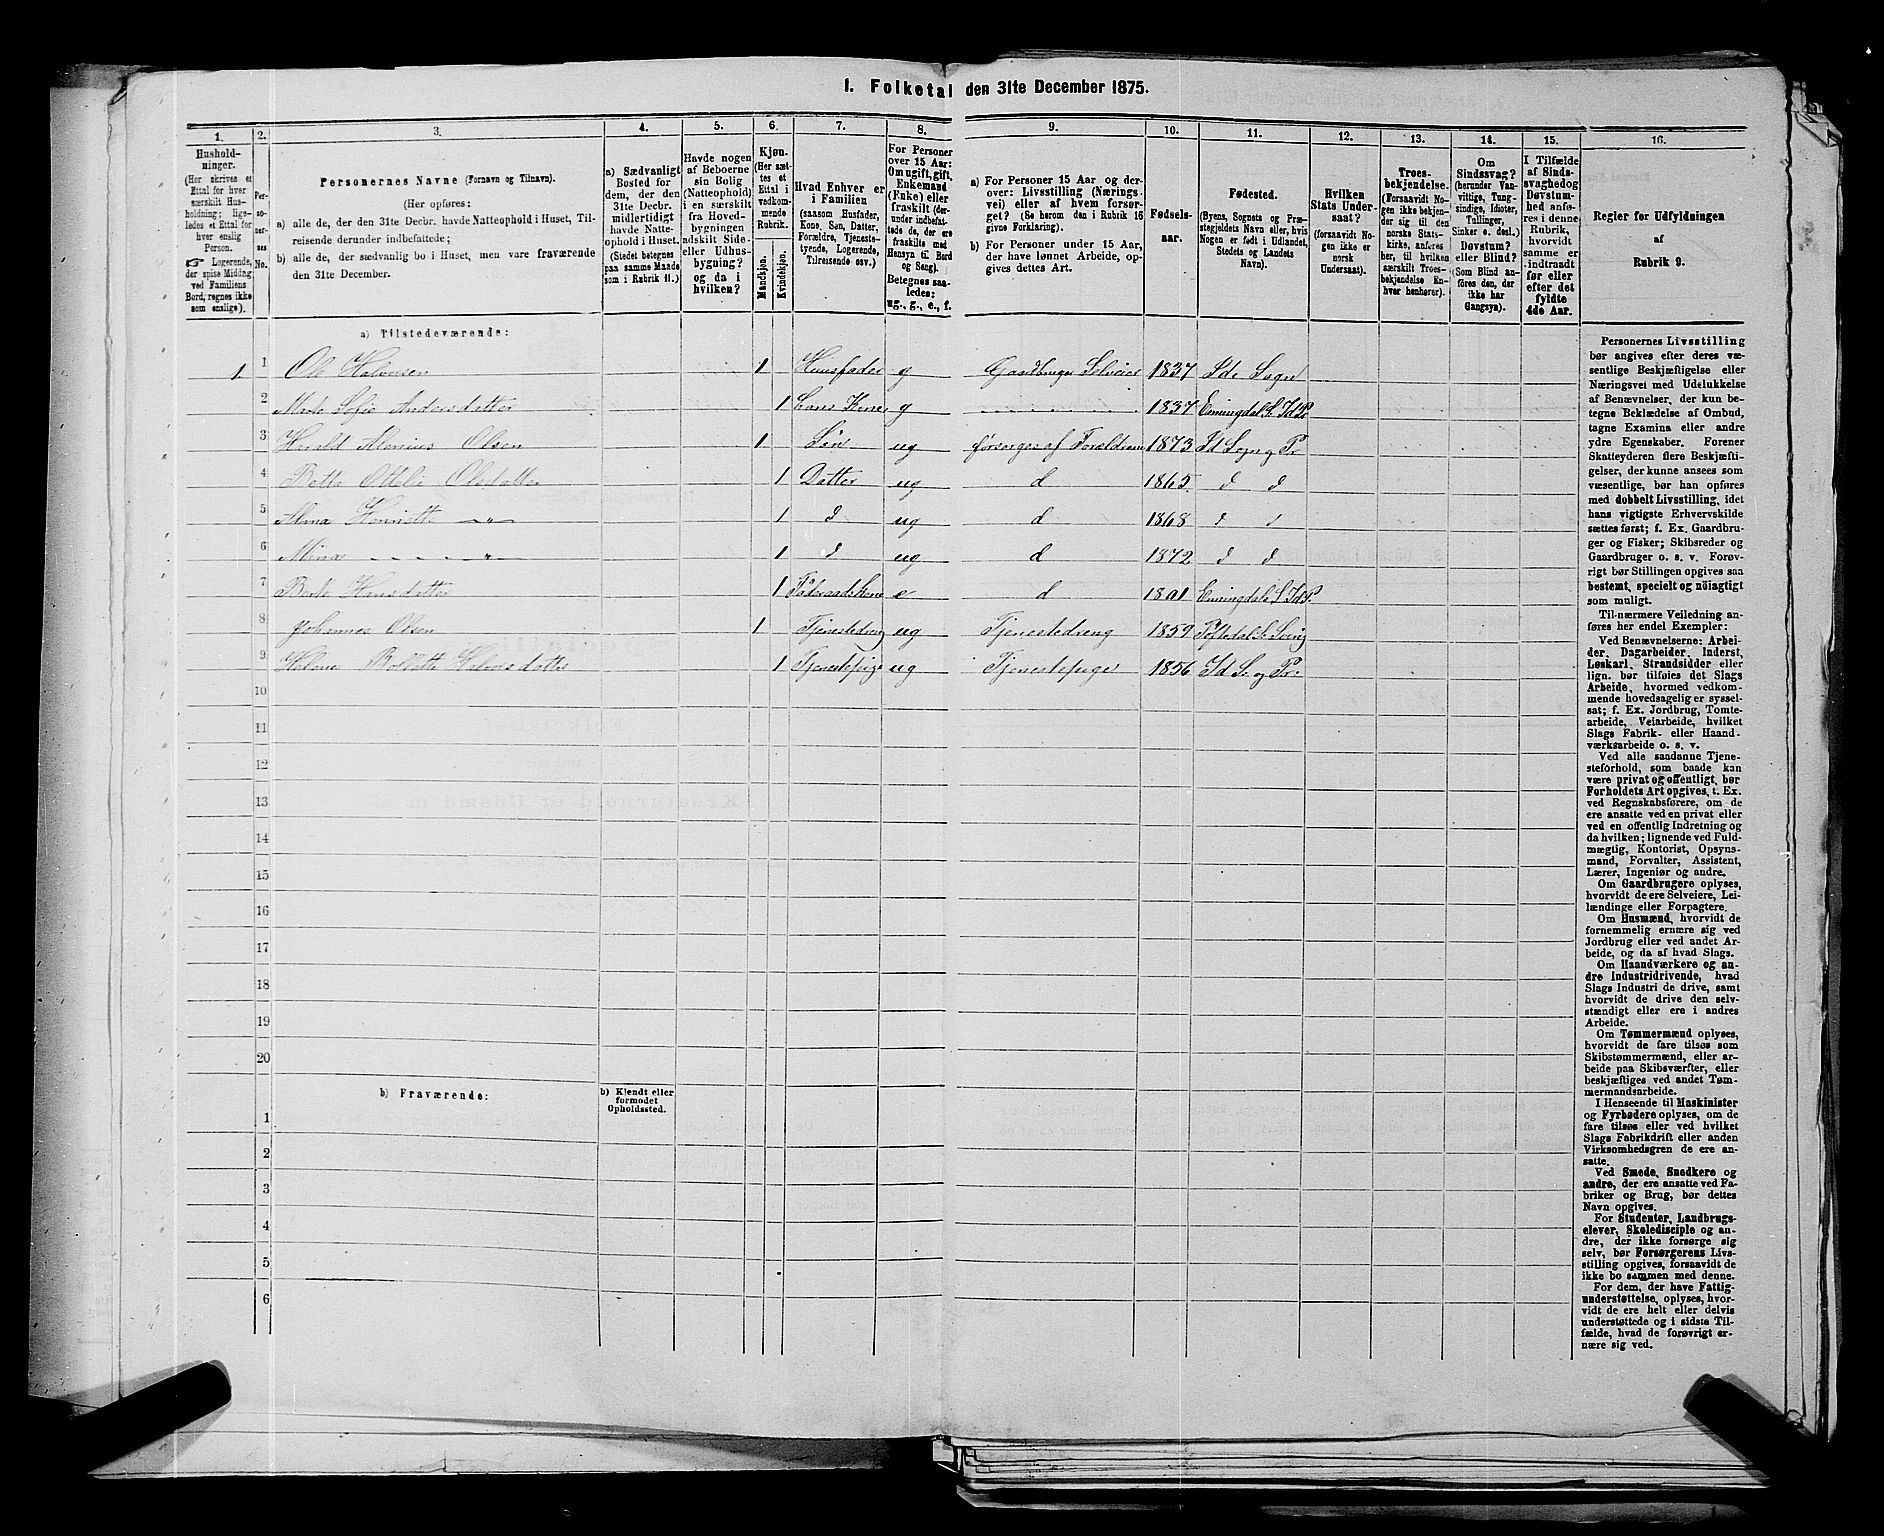 I. Folketal den 31te December 1875.
1.
Hushold-
ninger.
(Her skrives et
Ettal for hver
særskilt Hus-
holdning; lige-
ledes et Ettal for
hver enslig
Person.
☞ Logerende,
der spise Middag
ved Familiens
Bord, regnes ikke
som enslige).
2.
Per-
so-
ner-
nes
No.
3.
Personernes Navne (Fornavn og Tilnavn).
(Her opføres:
a) alle de, der den 31te Decbr. havde Natteophold i Huset, Til-
reisende derunder indbefattede;
b) alle de, der sædvanlig bo i Huset, men vare fraværende
den 31te December.
4.
a) Sædvanligt
Bosted for
dem, der den
31te Decbr.
midlertidigt
havde Natte-
ophold i Huset.
(Stedet betegnes
paa samme Maade
som i Rubrik 11.)
5.
Havde nogen
af Beboerne
sin Bolig
(Natteophold)
i en særskilt
fra Hoved-
bygningen
adskilt Side-
eller Udhus-
bygning?
og da i
hvilken?
6.
Kjøn.
(Her sæt-
tes et
Ettal i
vedkom-
mende
Rubrik.
Mandkjøn.
Kvindekjøn.
7.
Hvad Enhver er
i Familien
(saasom Husfader,
Kone, Søn, Datter,
Forældre, Tjeneste-
tyende, Logerende,
Tilreisende osv.)
8.
For Personer
over 15 Aar:
Om ugift, gift,
Enkemand
(Enke) eller
fraskilt (der-
under indbefat-
tede de, der ere
fraskilte med
Hensyn til Bord
og Seng).
Betegnes saa-
ledes:
ug., g., e., f.
9.
a) For Personer 15 Aar og der-
over: Livsstilling (Nærings-
vei) eller af hvem forsør-
get? (Se herom den i Rubrik 16
givne Forklaring).
b) For Personer under 15 Aar,
der have lønnet Arbeide, op-
gives dettes Art.
10.
Fødsels-
aar.
11.
Fødested.
(Byens, Sognets og Præ-
stegjeldets Navn eller, hvis
Nogen er født i Udlandet,
Stedets og Landets
Navn).
12.
Hvilken
Stats Under-
saat?
(forsaavidt No-
gen ikke er
norsk
Undersaat).
13.
Troes-
bekjendelse.
(Forsaavidt No-
gen ikke bekjen-
der sig til den
norske Stats-
kirke, anføres
her, til hvilken
særskilt Troes-
bekjendelse En-
hver henhører).
14.
Om
Sindssvag?
(herunder Van-
vittige, Tung-
sindige, Idioter,
Tullinger,
Sinker o. desl.)
Døvstum?
eller Blind?
(Som Blind an-
føres den, der
ikke har
Gangsyn).
15.
I Tilfælde
af Sinds-
svaghed og
Døvstum-
hed anfø-
res i denne
Rubrik,
hvorvidt
samme er
indtraadt
før eller
efter det
fyldte
4de Aar.
16.
Regler for Udfyldningen
af
Rubrik 9.
a) Tilstedeværende:
1. 1 Ole Halvorsen 1 Huusfader g Gaardbruger Selveier 1837 Ide Sogn
2 Marte Sofie Andersdatter 1 Hans Kone g 1837 Enningdal S. Id Pr
3 Harald Alenius Olsen 1 Søn ug forsørges af Forældrene 1873 Id Sogn og Pr
4 Betta Ottilie Olsdatter 1 Datter ug d 1865 d d
5 Alma Henriette — " — 1 d ug d 1868 d d
6 Mina " 1 d ug d 1872 d d
7 Berte Hansdatter 1 Föderaadskone e d 1801 Enningdal S Id P.
8 Johannes Olsen 1 Tjenestedreng ug Tjenestedreng 1859
9 Helene Hálvorsdatter 1 Tjenestepige ug Tjenestepige 1856 Id S. og Pr.
10
11
12
13
14
15
16
17
18
19
20
b) Fraværende:
b) Kjendt eller
formodet
Opholdssted.
1
2
3
4
5
6
Personernes Livsstilling
bør angives efter deres væ-
sentlige Beskjæftigelse eller
Næringsvei med Udelukkelse
af Benævnelser, der kun be-
tegne Beklædelse af Ombud,
tagne Examina eller andre
ydre Egenskaber. Forener
Skatteyderen flere Beskjæfti-
gelser, der kunne ansees som
væsentlige, bør han opføres
med dobbelt Livsstilling, idet
hans vigtigste Erhvervskilde
sættes først; f. Ex. Gaardbru-
ger og Fisker; Skibsreder og
Gaardbruger o. s. v. Forøv-
rigt bør Stillingen opgives saa
bestemt, specielt og nöiagtigt
som muligt.
Til nærmere Veiledning an-
føres her endel Exempler:
Ved Benævnelserne: Arbei-
der, Dagarbeider, Inderst,
Løskarl, Strandsidder eller
lign. bør tilføies det Slags
Arbeide, hvormed vedkom-
mende hovedsagelig er syssel-
sat; f. Ex. Jordbrug, Tomte-
arbeide, Veiarbeide, hvilket
Slags Fabrik- eller Haand-
værksarbeide o. s. v.
Ved alle saadanne Tjene-
steforhold, som baade kan
være privat og offentligt, bør
Forholdets Art opgives, t. Ex.
ved Regnskabsførere, om de
ere ansatte ved en privat eller
ved en offentlig Indretning og
da hvilken; lignende ved Fuld-
mægtig, Kontorist, Opsyns-
mand, Forvalter, Assistent,
Lærer, Ingeniør og andre.
Om Gaardbrugere oplyses,
hvorvidt de ere Selveiere, Lei-
lændinge eller Forpagtere.
Om Husmænd, hvorvidt de
fornemmelig ernære sig ved
Jordbrug eller ved andet Ar-
beide, og da af hvad Slags.
Om Haandværkere og an-
dre Industridrivende, hvad
Slags Industri de drive, samt
hvorvidt de drive den selv-
stændigt eller ere i andres
Arbeide.
Om Tømmermænd oplyses,
hvorvidt de fare tilsøs som
Skibstømmermænd, eller ar-
beide paa Skibsværfter, eller
beskjæftiges ved andet Tøm-
mermandsarbeide.
I Henseende til Maskinister
og Fyrbødere oplyses, om de
fare tilsøs eller ved hvilket
Slags Fabrikdrift eller anden
Virksomhedsgren de ere an-
satte.
Ved Smede, Snedkere og
andre, der ere ansatte ved Fa-
briker og Brug, bør dettes
Navn opgives.
For Studenter, Landbrugs-
elever, Skoledisciple og an-
dre, der ikke forsørge sig
selv, bør Forsørgerens Livs-
stilling opgives, forsaavidt de
ikke bo sammen med denne.
For dem, der have Fattig-
understøttelse, oplyses, hvor-
vidt de ere helt eller delvis
understøttede og i sidste Til-
fælde, hvad de forøvrigt er-
nære sig ved.